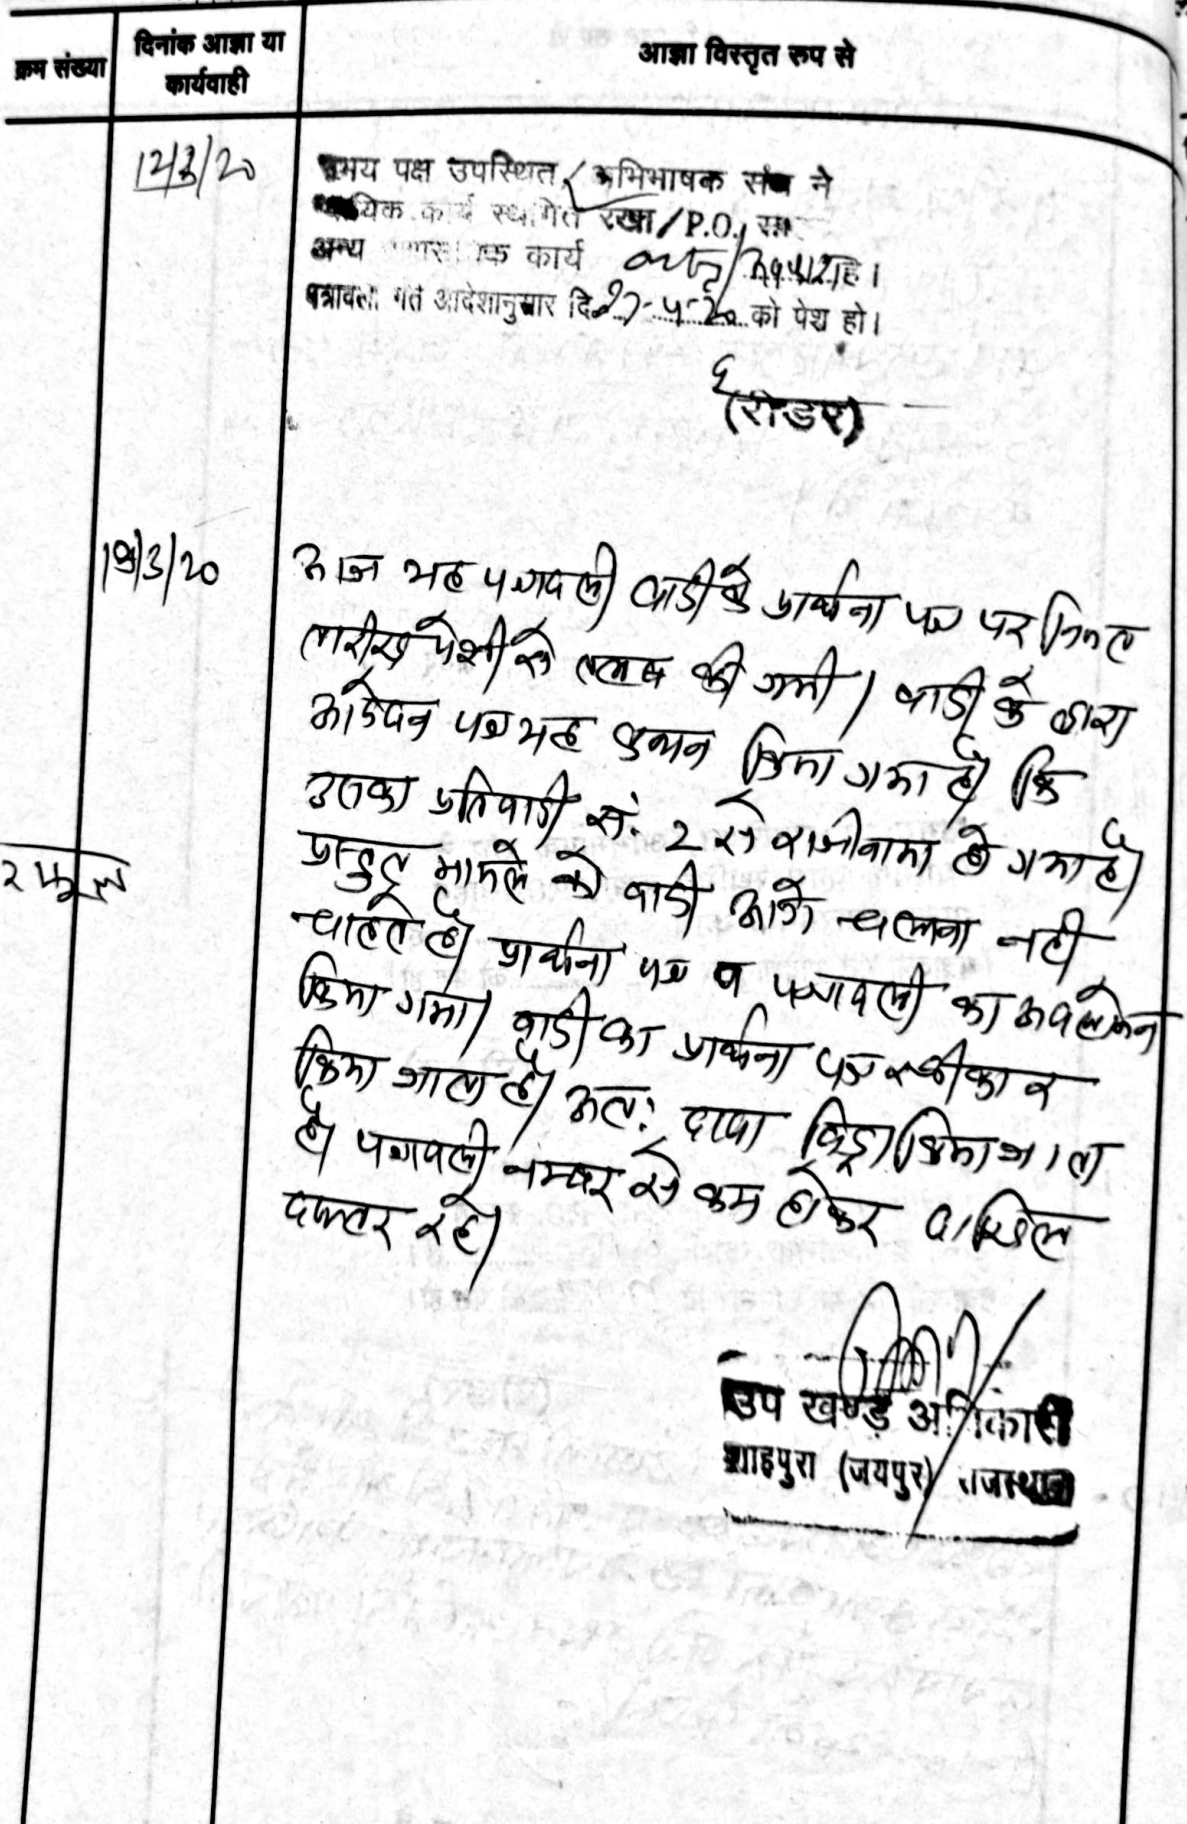 क्रम संख्या
दिनांक आज्ञा या
कार्यवाही
आज्ञा विस्तृत रूप से
12/3/20
उभय पक्ष उपस्थित अभिभाषक संघ ने
न्यायिक कार्य स्थगित रखा / P.O.
अन्य कार्य है।
पत्रावली गत आदेशानुसार दि. 27-4-20 को पेश हो।
(रीडर)
19/3/20
आज यह पत्रावली वादी के प्रार्थना पत्र पर नियत
तारीख पेशी से तलब की गयी। वादी के द्वारा
आवेदन पत्र यह कथन किया गया है कि
उसका प्रतिवादी सं. 2 से राजीनामा हो गया है।
प्रस्तुत मामले को वादी आगे चलाना नही
चाहते है। प्रार्थना पत्र व पत्रावली का अवलोकन
किया गया। वादी का प्रार्थना पत्र स्वीकार
किया जाता है। अतः दावा विड्रा किया जाता
है। पत्रावली नम्बर से कम होकर दाखिल
दफ्तर रहे।
उप खण्ड अधिकारी
शाहपुरा (जयपुर) राजस्थान